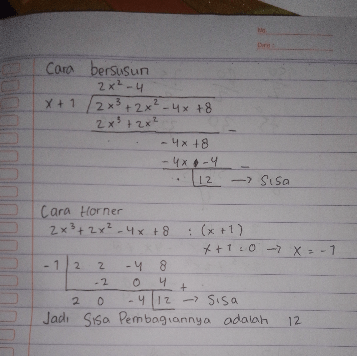 No.
Date:
Cara bersusun
2x² - 4
x + 1 / 2x³ + 2x² - 4x + 8
2x³ + 2x²
-
- 4x + 8
- 4x - 4
-
12 → Sisa
Cara Horner
2x³ + 2x² - 4x + 8 : (x + 1)
x + 1 = 0 → x = -1
-1 | 2 2 -4 8
-2 0 4 +
2 0 -4 | 12 → Sisa
Jadi Sisa Pembagiannya adalah 12